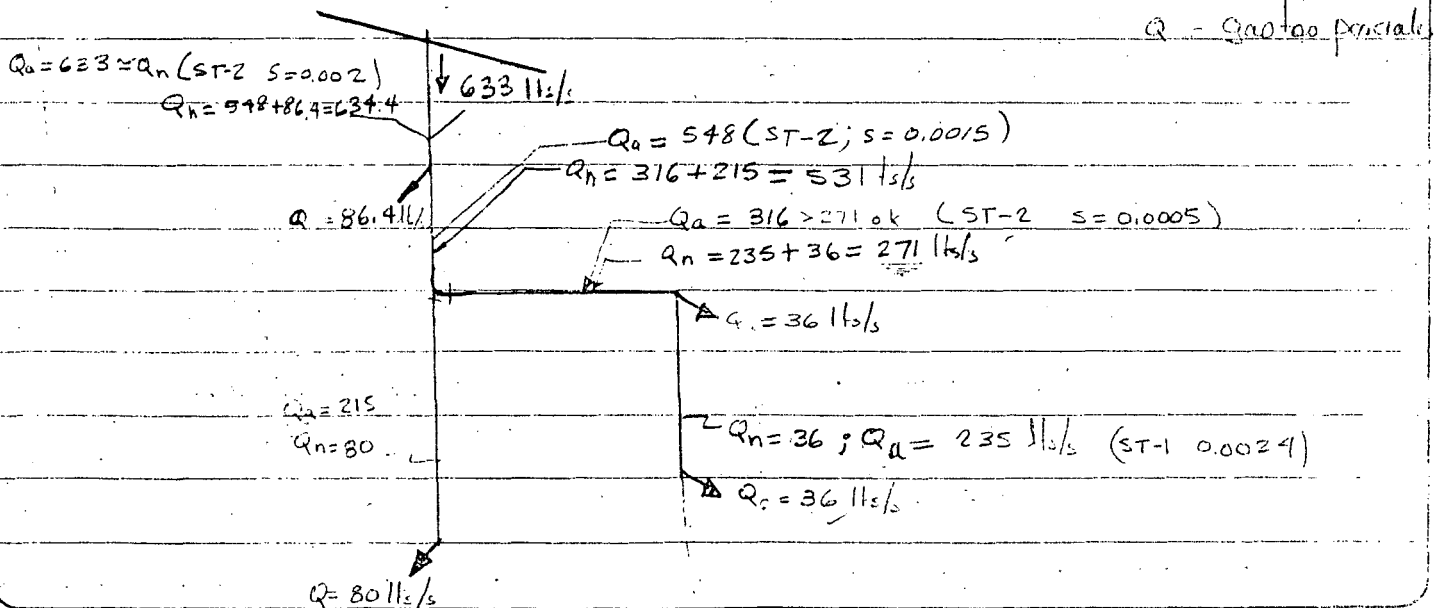 Q - gastos parciales
Qa = 633 ≈ Qn (ST-2 S=0.002)
633 lts/s
Qn = 548+86.4=634.4
Qa = 548 (ST-2; S = 0.0015)
Qn = 316 + 215 = 531 lts/s
Q = 86.4 lt/
Qa = 316 > 271 ok (ST-2 S = 0.0005)
Qn = 235 + 36 = 271 lts/s
= 36 lts/s
Qa = 215
Qn = 80
Qn = 36 ; Qa = 235 lts/s (ST-1 0.0024)
= 36 lts/s
Q = 80 lts/s